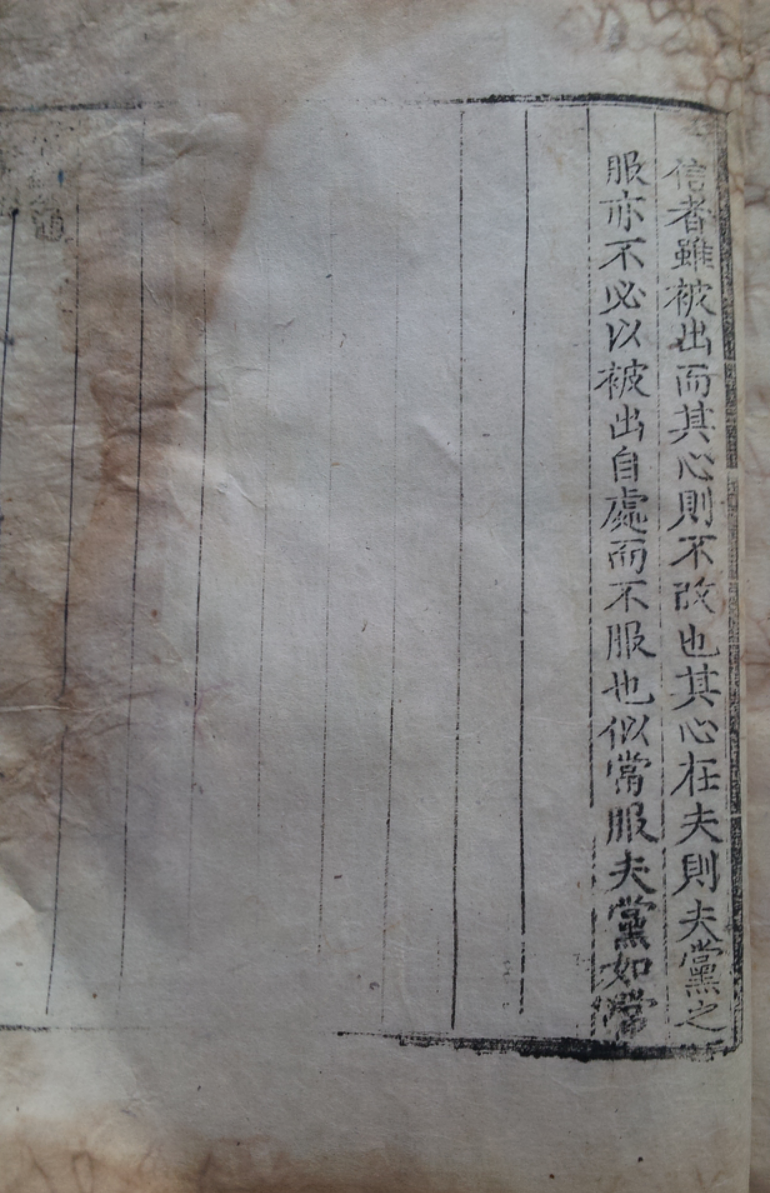 信者雖被出而其心則不改也其心在夫則夫黨之
服亦不必以被出自處而不服也似當服夫黨如常